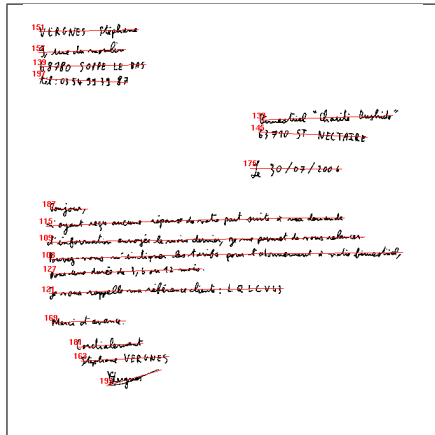 VERGNES Stéphane
rue du moulin
68780 SOPPE LE BAS
tél: 03 54 99 39 87
Bimestriel "Charlie Bushido"
63710 ST NECTAIRE
Le 30/07/2006
Bonjour,
N'ayant reçu aucune réponse de votre part suite à ma demande
d'information envoyée le mois dernier, je me permet de vous relancer
Pouvez vous m'indiquer les tarifs pour l'abonnement à votre bimestriel,
Pour une durée de 3, 6 ou 12 mois.
Je vous rappelle ma référence client:
Merci d'avance.
Cordialement
Stéphane VERGNES
Vergnes